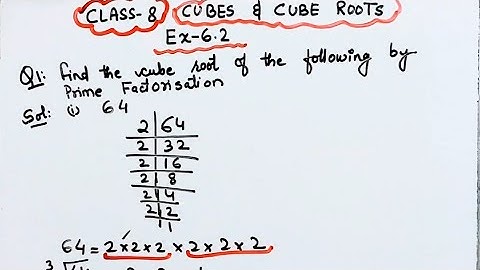 CLASS-8 CUBES & CUBE ROOTS
Ex-6.2
Q1: Find the cube root of the following by
Prime Factorisation
Sol: (i) 64
2 | 64
2 | 32
2 | 16
2 | 8
2 | 4
2 | 2
1
64 = 2 × 2 × 2 × 2 × 2 × 2